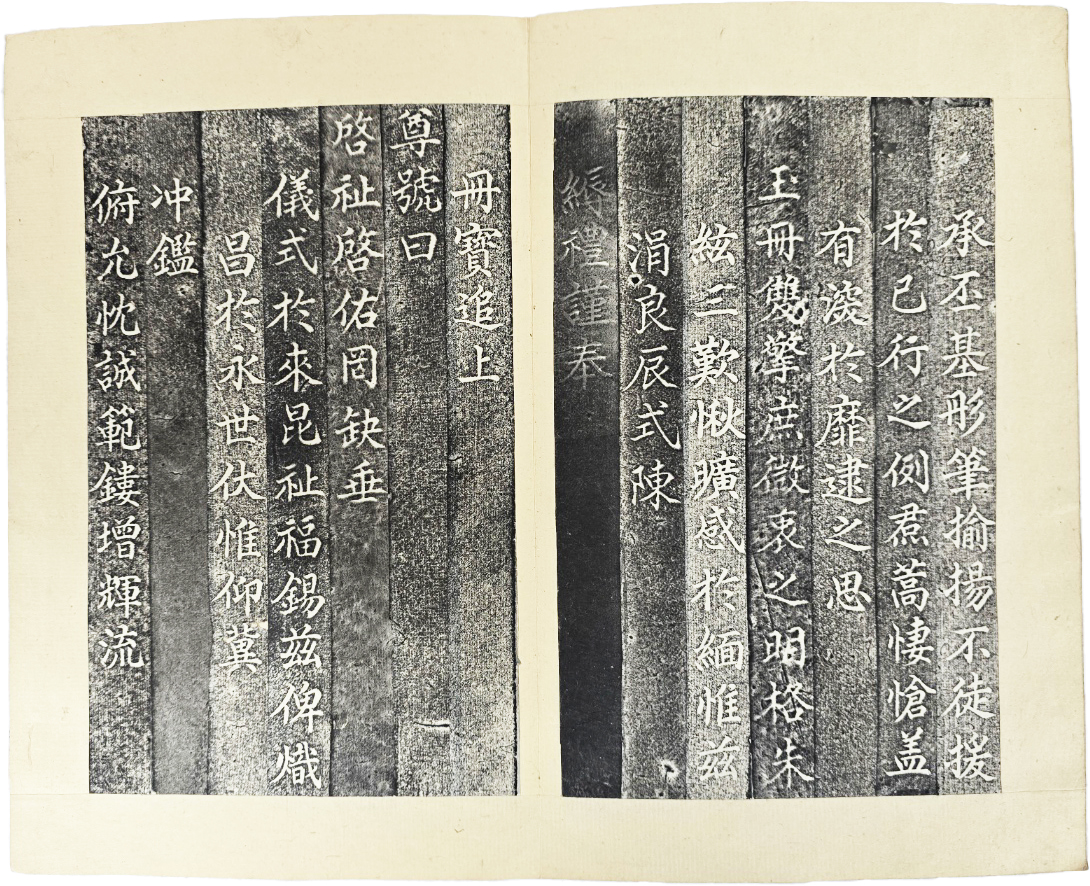 承丕基彤筆揄揚不徒援
於已行之例焄蒿悽愴盖
有深於靡逮之思
玉冊雙擎庶微衷之明格朱
絃三歎愀曠感於緬惟兹
涓良辰式陳
縟禮謹奉
冊寶追上
尊號曰
啓祉啓佑罔缺垂
儀式於來昆祉福錫兹俾熾
昌於永世伏惟仰冀
冲鑑
俯允忱誠範鏤增輝流